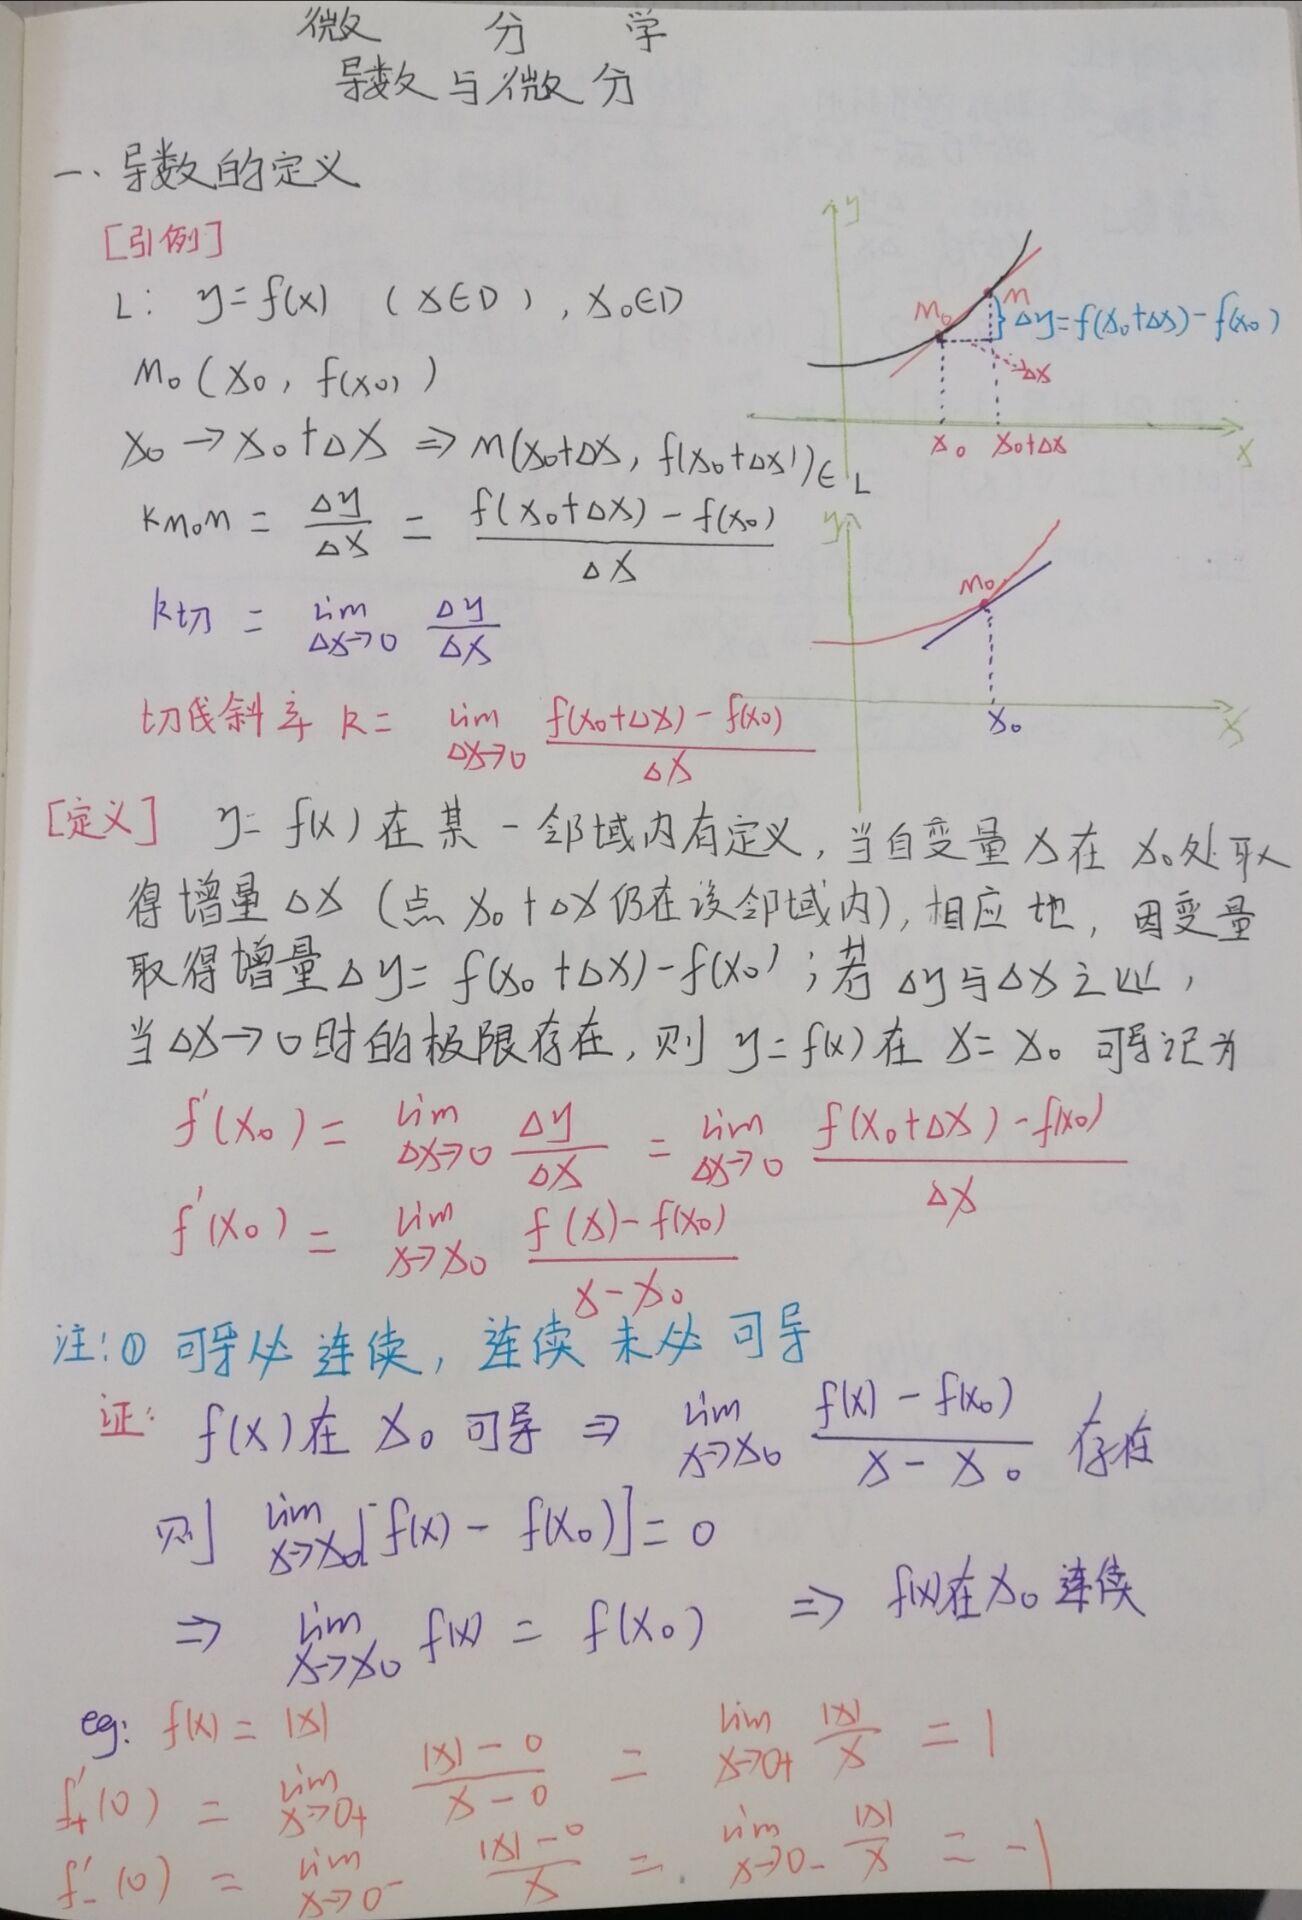 微 分 学
导数与微分
一、导数的定义
[引例]
L: y=f(x) (x∈D), x₀∈D
M₀(x₀, f(x₀))
x₀→x₀+Δx ⇒ M(x₀+Δx, f(x₀+Δx))∈L
k_M₀M = Δy/Δx = (f(x₀+Δx)-f(x₀))/Δx
k切 = lim Δx→0 Δy/Δx
切线斜率 k= lim Δx→0 (f(x₀+Δx)-f(x₀))/Δx
y
M₀
M
}Δy=f(x₀+Δx)-f(x₀)
Δx
x₀ x₀+Δx
x
y
M₀
x₀
x
[定义] y=f(x)在某一邻域内有定义,当自变量x在x₀处取
得增量Δx(点x₀+Δx仍在该邻域内),相应地,因变量
取得增量Δy=f(x₀+Δx)-f(x₀);若Δy与Δx之比,
当Δx→0时的极限存在,则y=f(x)在x=x₀可导记为
f'(x₀)= lim Δx→0 Δy/Δx = lim Δx→0 (f(x₀+Δx)-f(x₀))/Δx
f'(x₀)= lim x→x₀ (f(x)-f(x₀))/(x-x₀)
注:① 可导必连续,连续未必可导
证: f(x)在x₀可导 ⇒ lim x→x₀ (f(x)-f(x₀))/(x-x₀) 存在
则 lim x→x₀[f(x)-f(x₀)]=0
⇒ lim x→x₀ f(x) = f(x₀) ⇒ f(x)在x₀连续
eg: f(x)=|x|
f'₊(0) = lim x→0+ (|x|-0)/(x-0) = lim x→0+ |x|/x = 1
f'₋(0) = lim x→0- (|x|-0)/x = lim x→0- |x|/x = -1